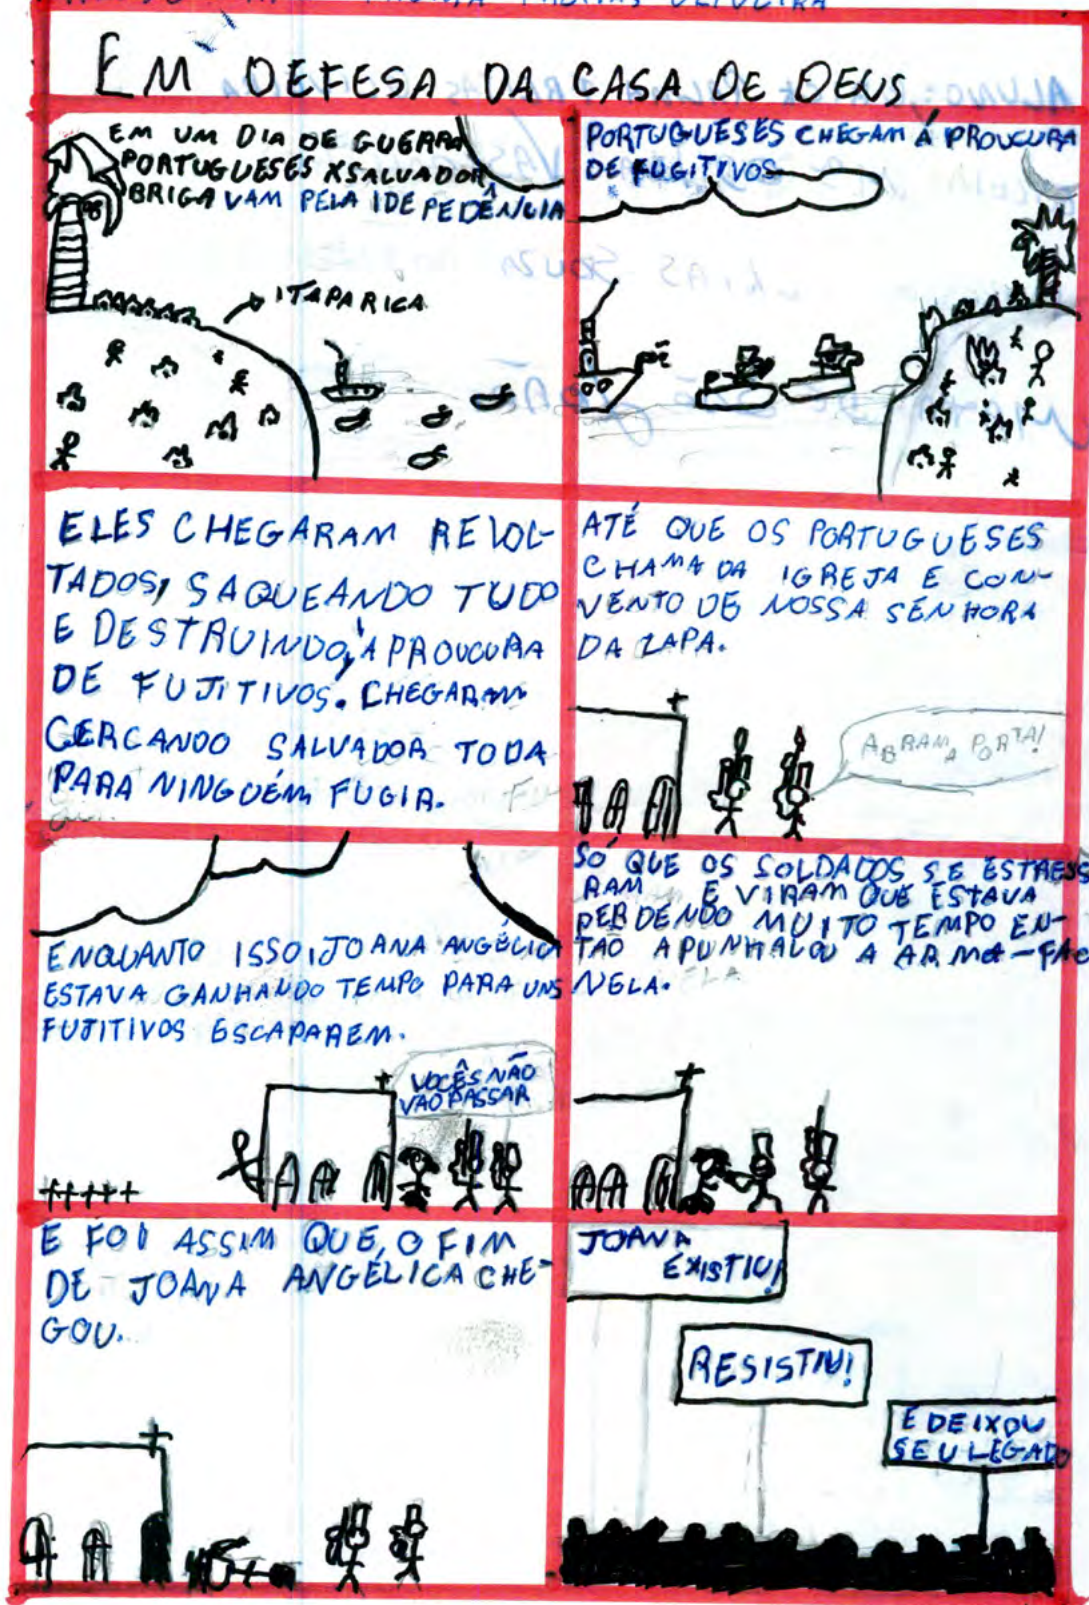 EM DEFESA DA CASA DE DEUS
EM UM DIA DE GUERRA
PORTUGUESES X SALVADOR
BRIGAVAM PELA IDEPEDÊNCIA
ITAPARICA
PORTUGUESES CHEGAM À PROUCURA
DE FUGITIVOS
ELES CHEGARAM REVOL-
TADOS, SAQUEANDO TUDO
E DESTRUINDO, À PROUCURA
DE FUJITIVOS. CHEGARAM
CERCANDO SALVADOR TODA
PARA NINGUÉM FUGIR.
ATÉ QUE OS PORTUGUESES
CHAMA DA IGREJA E CON-
VENTO DE NOSSA SENHORA
DA LAPA.
ABRAM A PORTA!
ENQUANTO ISSO, JOANA ANGÉLICA
ESTAVA GANHANDO TEMPO PARA UNS
FUJITIVOS ESCAPAREM.
VOCÊS NÃO
VÃO PASSAR
SÓ QUE OS SOLDADOS SE ESTRESS
RAM E VIRAM QUE ESTAVA
PERDENDO MUITO TEMPO EN-
TÃO APUNHALOU A ARMA-FAC
NELA.
E FOI ASSIM QUE, O FIM
DE JOANA ANGÉLICA CHE-
GOU.
JOANA
EXISTIU!
RESISTIU!
E DEIXOU
SEU LEGADO